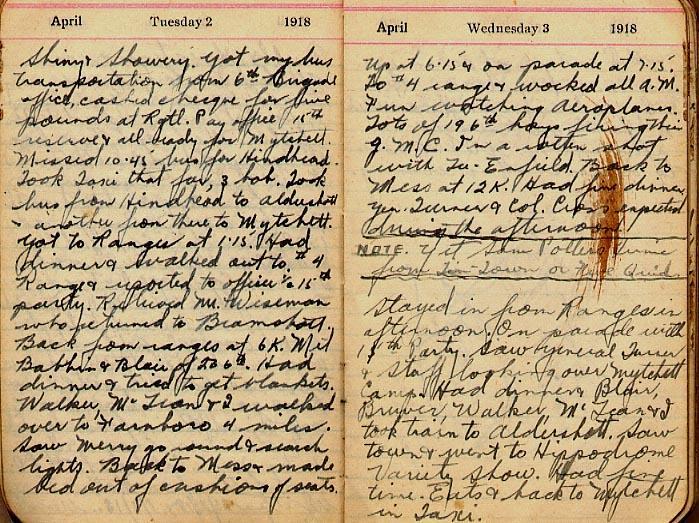 April Tuesday 2 1918
Shiny & Showery. Got my bus
transportation from 6th Brigade
office, cashed cheque for five
pounds at Regtl. Pay office 15th
reserve & all ready for Mytchett.
Missed 10.45 bus for Hindhead.
Took Taxi that far, 3 bob. Took
bus from Hindhead to Aldershot
& another from there to Mytchett.
Got to Ranges at 1.15. Had
dinner & walked out to #4
Range & reported to officer i/c 15th
party. Relieved Mr. Wiseman
who returned to Bramshott.
Back from ranges at 6K. Met
Babbin & Blair of 206th. Had
dinner & tried to get blankets.
Walker, McLean & I walked
over to Farnboro 4 miles.
Saw Merry go round & search
lights. Back to Mess & made
bed out of cushions of seats.
April Wednesday 3 1918
Up at 6.15 & on parade at 7.15
To #4 range & worked all A.M.
Fun watching Aeroplanes.
Lots of 196th boys firing their
G.M.C. I'm a rotten shot
with Lee-Enfield. Back to
Mess at 12K. Had fine dinner
Gen. Turner & Col. Cross expected
during the afternoon
NOTE. Yet Sam Potters came
from
Stayed in from Ranges in
afternoon. On parade with
15th Party. Saw General Turner
& Staff looking over Mytchett
Camp. Had dinner & Blair,
Bruver, Walker, McLean & I
took train to Aldershott. Saw
town & went to Hippodrome
Variety Show. Had fine
time. Eats & back to Mytchett
in Taxi.